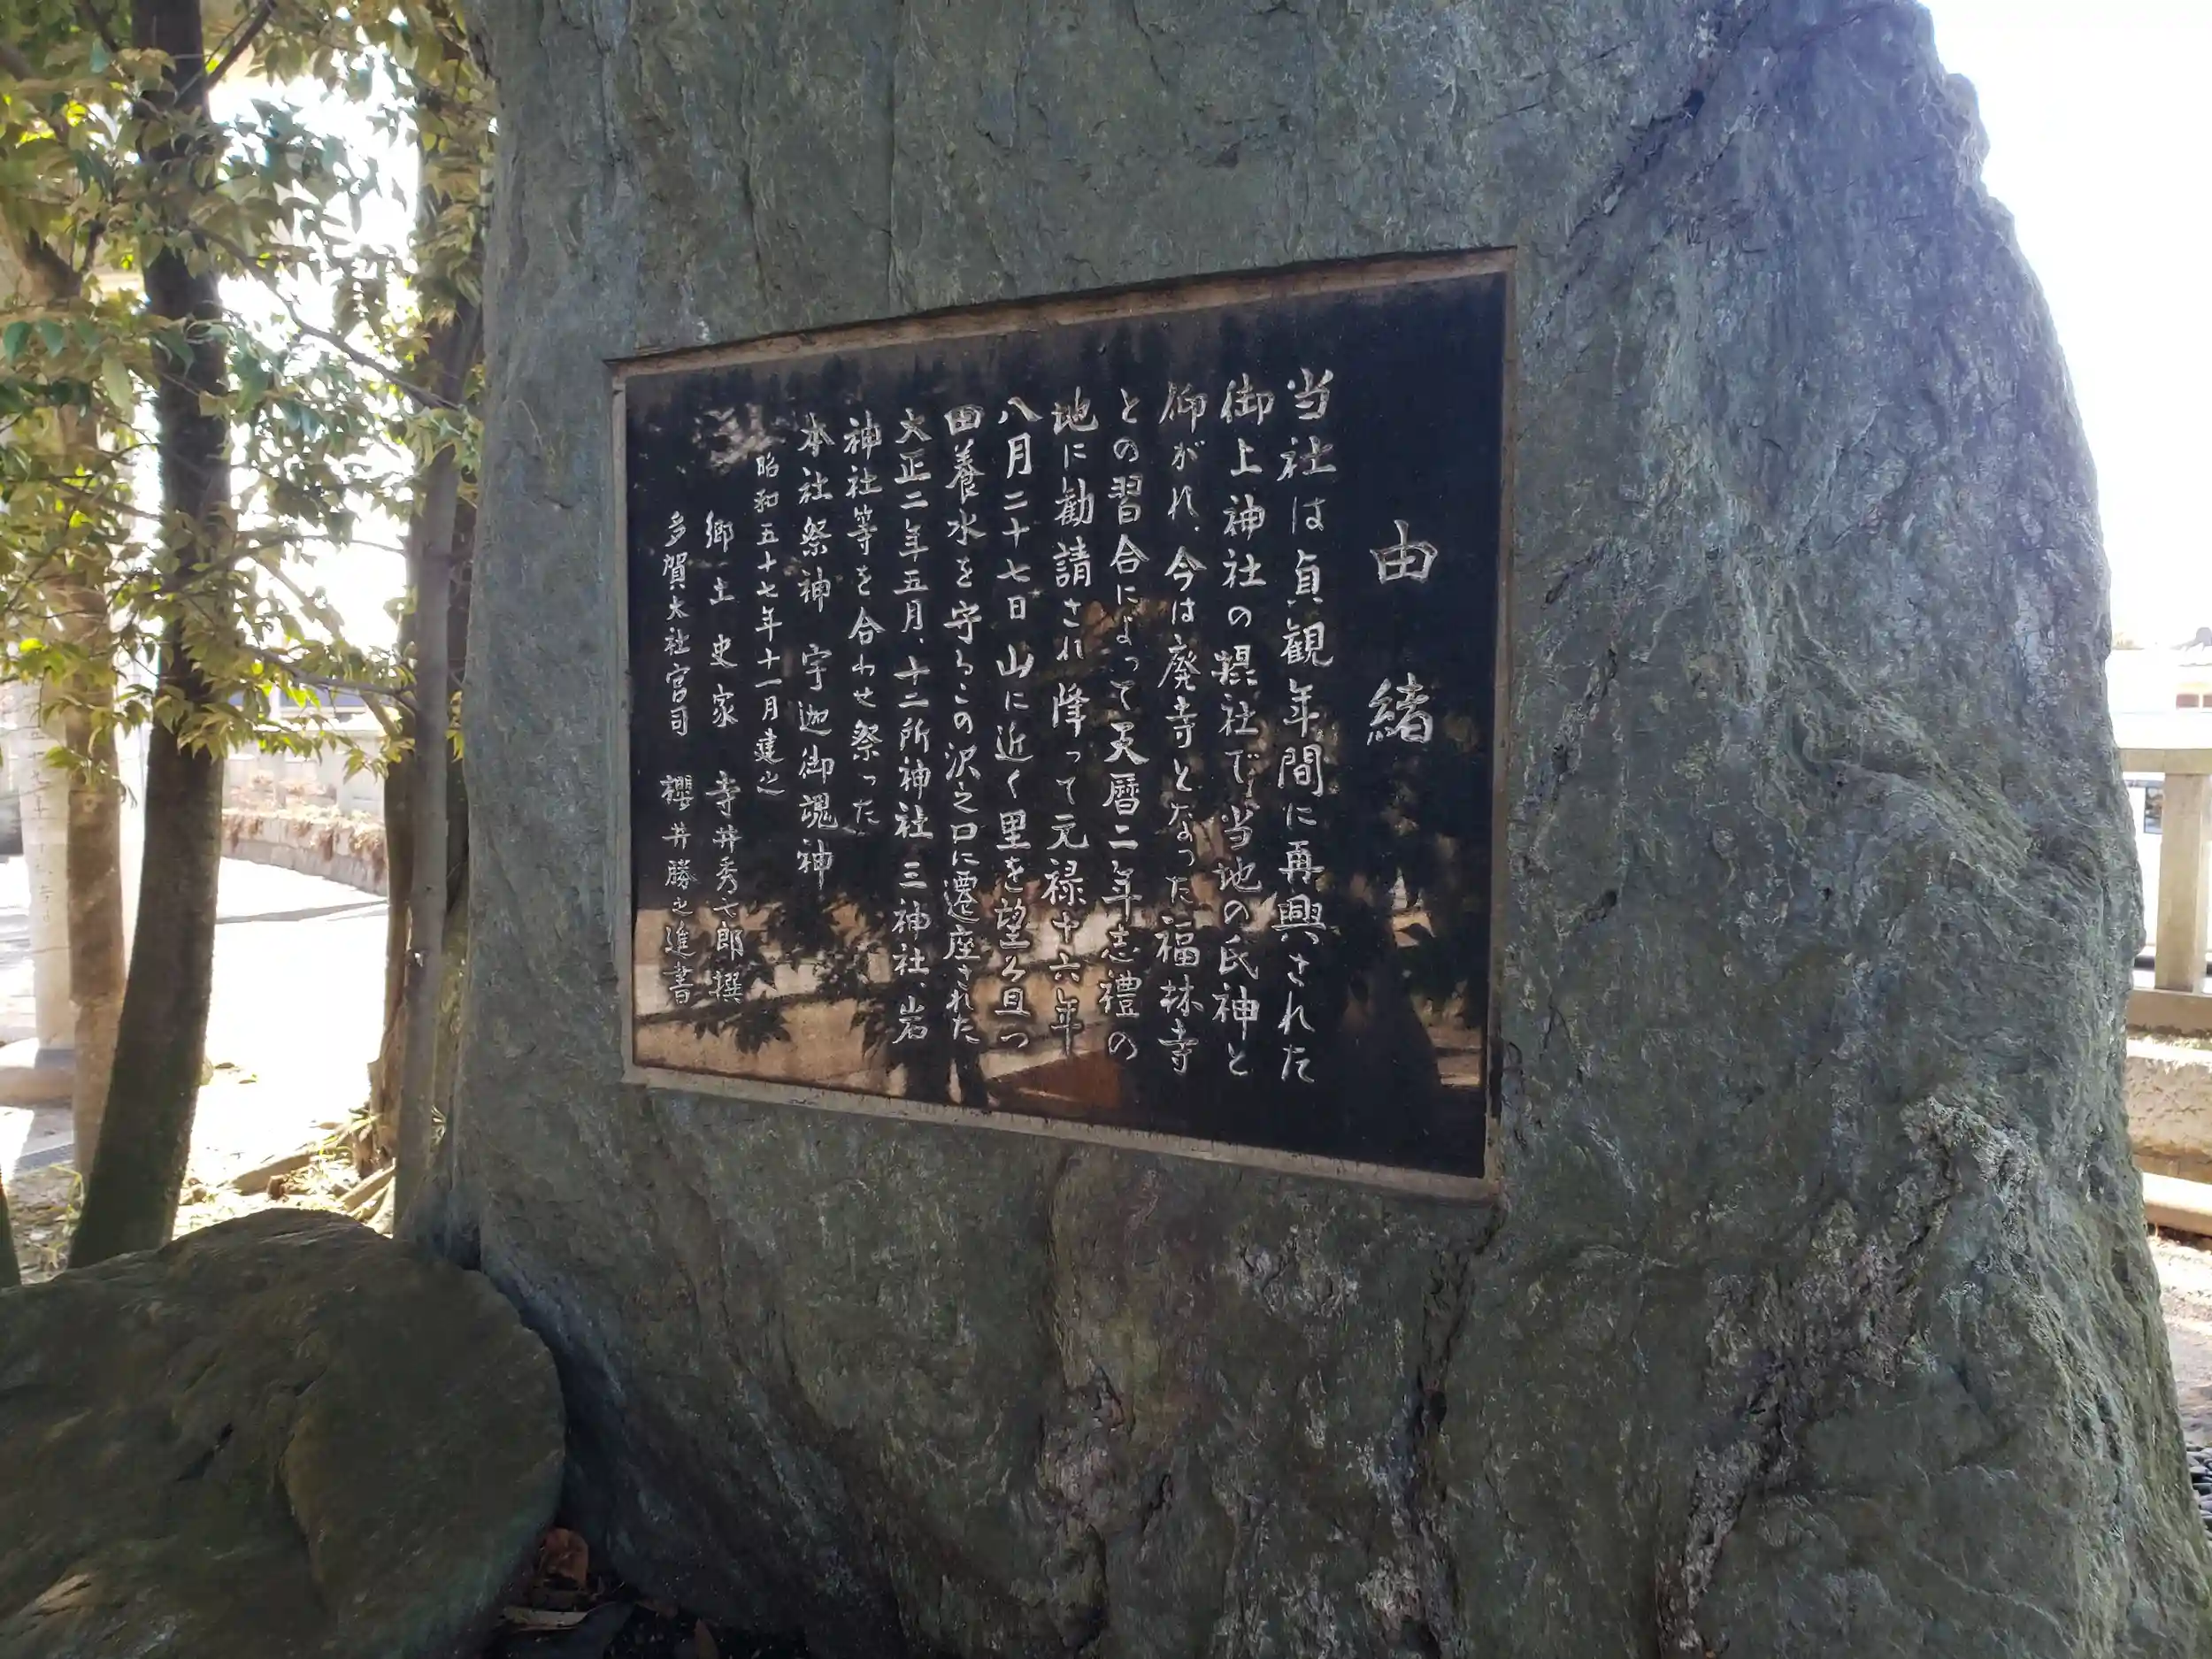 由緒
当社は貞観年間に再興された
御上神社の摂社で、当地の氏神と
仰がれ、今は廃寺となった福林寺
との習合によって天暦二年志禮の
地に勧請され降って元禄十六年
八月二十七日山に近く里を望み且つ
田養水を守るこの沢之口に遷座された
大正二年五月、十二所神社、三神社、岩
神社等を合わせ祭った
本社祭神 宇迦御魂神
昭和五十七年十一月建之
郷土史家 寺井秀七郎撰
多賀大社宮司 櫻井勝之進書